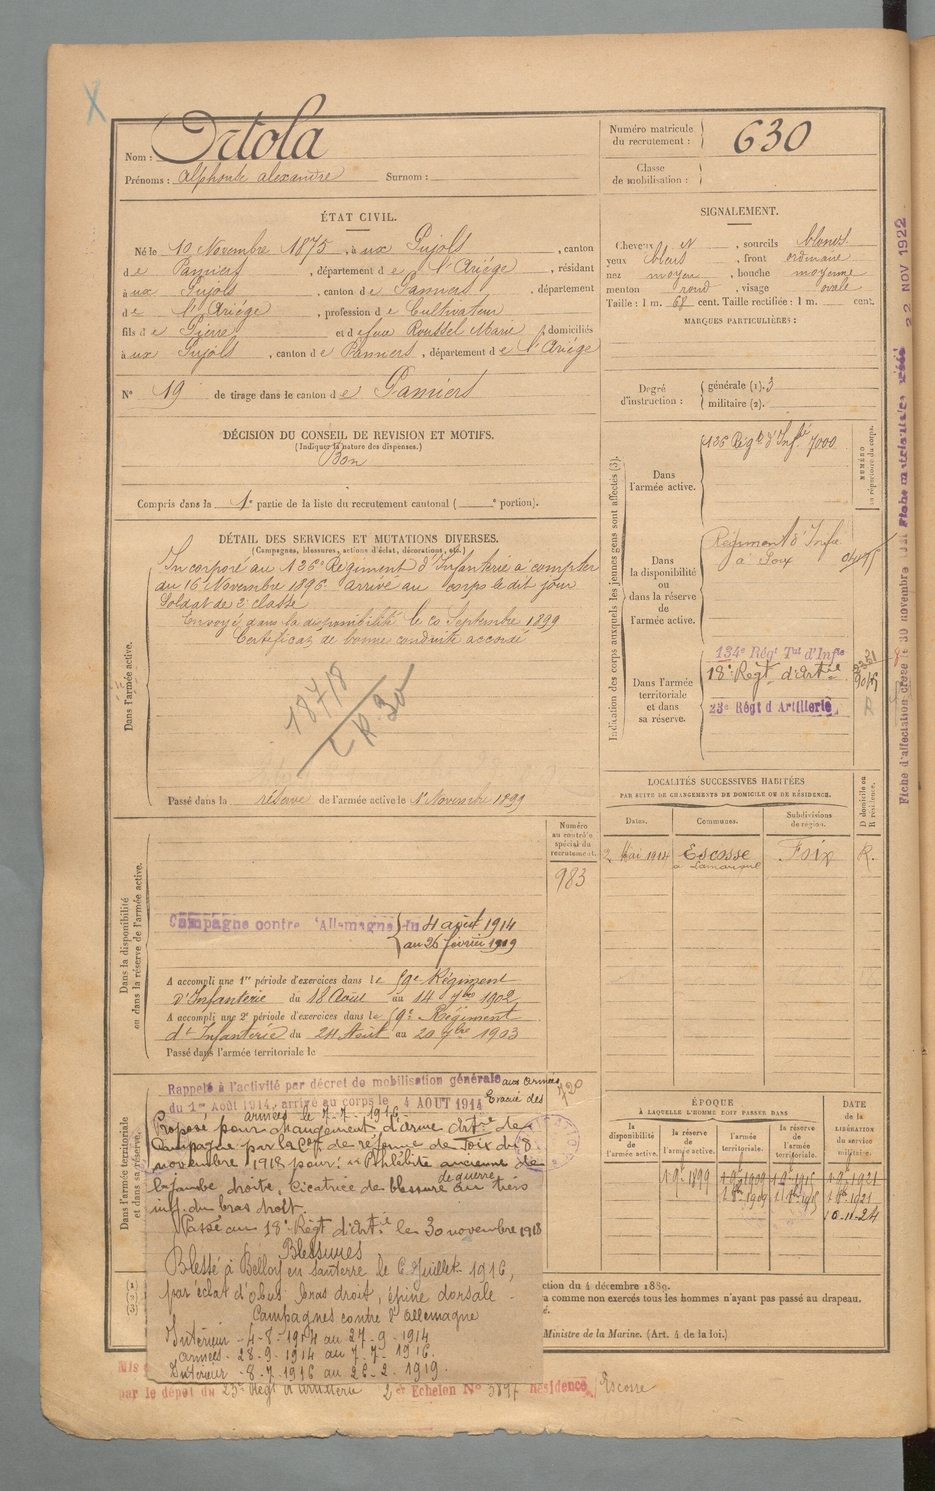 Nom : Ortola
Prénoms : Alphonse Alexandre Surnom :
Numéro matricule du recrutement : 630
Classe de mobilisation :
ÉTAT CIVIL.
Né le 10 Novembre 1875, à ux Pujols, canton
de Pamiers, département de l'Ariège, résidant
à ux Pujols, canton de Pamiers, département
de l'Ariège, profession de Cultivateur
fils de Pierre et de feue Roussel Marie, domiciliés
à ux Pujols, canton de Pamiers, département de l'Ariège
N° 19 de tirage dans le canton de Pamiers
SIGNALEMENT.
Cheveux N, sourcils blonds
yeux bleus, front ordinaire
nez moyen, bouche moyenne
menton rond, visage ovale
Taille : 1 m. 68 cent. Taille rectifiée : 1 m. cent.
MARQUES PARTICULIÈRES :
Degré d'instruction : générale (1). 3
militaire (2).
DÉCISION DU CONSEIL DE REVISION ET MOTIFS.
(Indiquer la nature des dispenses.)
Bon
Compris dans la 1e partie de la liste du recrutement cantonal ( e portion).
DÉTAIL DES SERVICES ET MUTATIONS DIVERSES.
(Campagnes, blessures, actions d'éclat, décorations, etc.)
Dans l'armée active.
Incorporé au 126e Régiment d'Infanterie à compter
du 16 Novembre 1896 arrivé au corps le dit jour
Soldat de 2e classe
Envoyé dans la disponibilité le 20 Septembre 1899
Certificat de bonne conduite accordé
1878
CR 30
Passé dans la réserve de l'armée active le 1er Novembre 1899
Indication des corps auxquels les jeunes gens sont affectés (3).
Dans l'armée active. 126 Régt d'Infie 7000
NUMÉRO au répertoire du corps.
Dans la disponibilité ou dans la réserve de l'armée active. Régiment d'Infie
à Foix
Dans l'armée territoriale et dans sa réserve. 134e Régt Tal d'Infie
18e Régt d'Artie
23e Régt d'Artillerie
R
LOCALITÉS SUCCESSIVES HABITÉES
PAR SUITE DE CHANGEMENTS DE DOMICILE OU DE RÉSIDENCE.
Dates. Communes. Subdivisions de région. D domicile ou R résidence.
2 Mai 1914 Escosse Foix R.
Dans la disponibilité ou dans la réserve de l'armée active.
Numéro au contrôle spécial du recrutement.
983
Campagne contre l'Allemagne du 4 août 1914
au 26 février 1919
A accompli une 1re période d'exercices dans le 59e Régiment
d'Infanterie du 18 Août au 14 7bre 1902
A accompli une 2e période d'exercices dans le 59e Régiment
d'Infanterie du 24 Août au 20 7bre 1903
Passé dans l'armée territoriale le
Dans l'armée territoriale et dans sa réserve.
Rappelé à l'activité par décret de mobilisation générale aux armées
du 1er Août 1914, arrivé au corps le 4 AOUT 1914 Evacué des
armées le 7-7-1916
Proposé pour changement d'arme Artie de
Campagne par la Con de réforme de Foix du 8
novembre 1918 pour : "Phlébite ancienne de
la jambe droite, Cicatrice de blessure de guerre au tiers
inf. du bras droit.
Passé au 18e Régt d'Artie le 30 novembre 1918
Blessures
Blessé à Belloy en Santerre le 6 Juillet 1916,
par éclat d'obus bras droit, épine dorsale.
Campagnes contre l'Allemagne
Intérieur - 4-8-1914 au 27-9-1914
armées - 28-9-1914 au 7-7-1916.
Intérieur - 8-7-1916 au 26-2-1919.
ÉPOQUE
À LAQUELLE L'HOMME DOIT PASSER DANS
la disponibilité de l'armée active. la réserve de l'armée active. l'armée territoriale. la réserve de l'armée territoriale.
DATE de la LIBÉRATION du service militaire.
1-9-1899 1-9-1909 1-9-1915 1-9-1921
1-8-1909 1-8-1915 1-8-1921
10-11-24
(1)
(2)
(3)
ction du 4 décembre 1889.
a comme non exercés tous les hommes n'ayant pas passé au drapeau.
Ministre de la Marine. (Art. 4 de la loi.)
Mis
par le dépôt du 23e Régt d'Artillerie 2e Echelon N° 3897 Résidence Escosse
22 NOV 1922